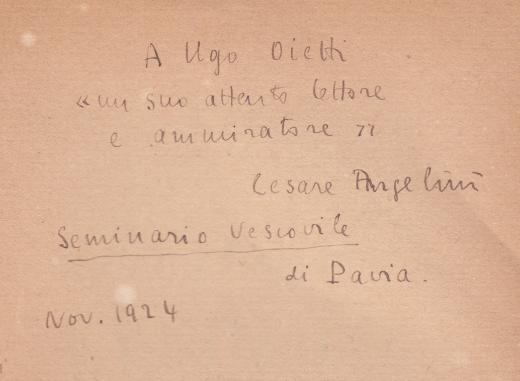 A Ugo Oietti
«un suo attento lettore
e ammiratore »
Cesare Angelini
Seminario Vescovile
di Pavia.
Nov. 1924